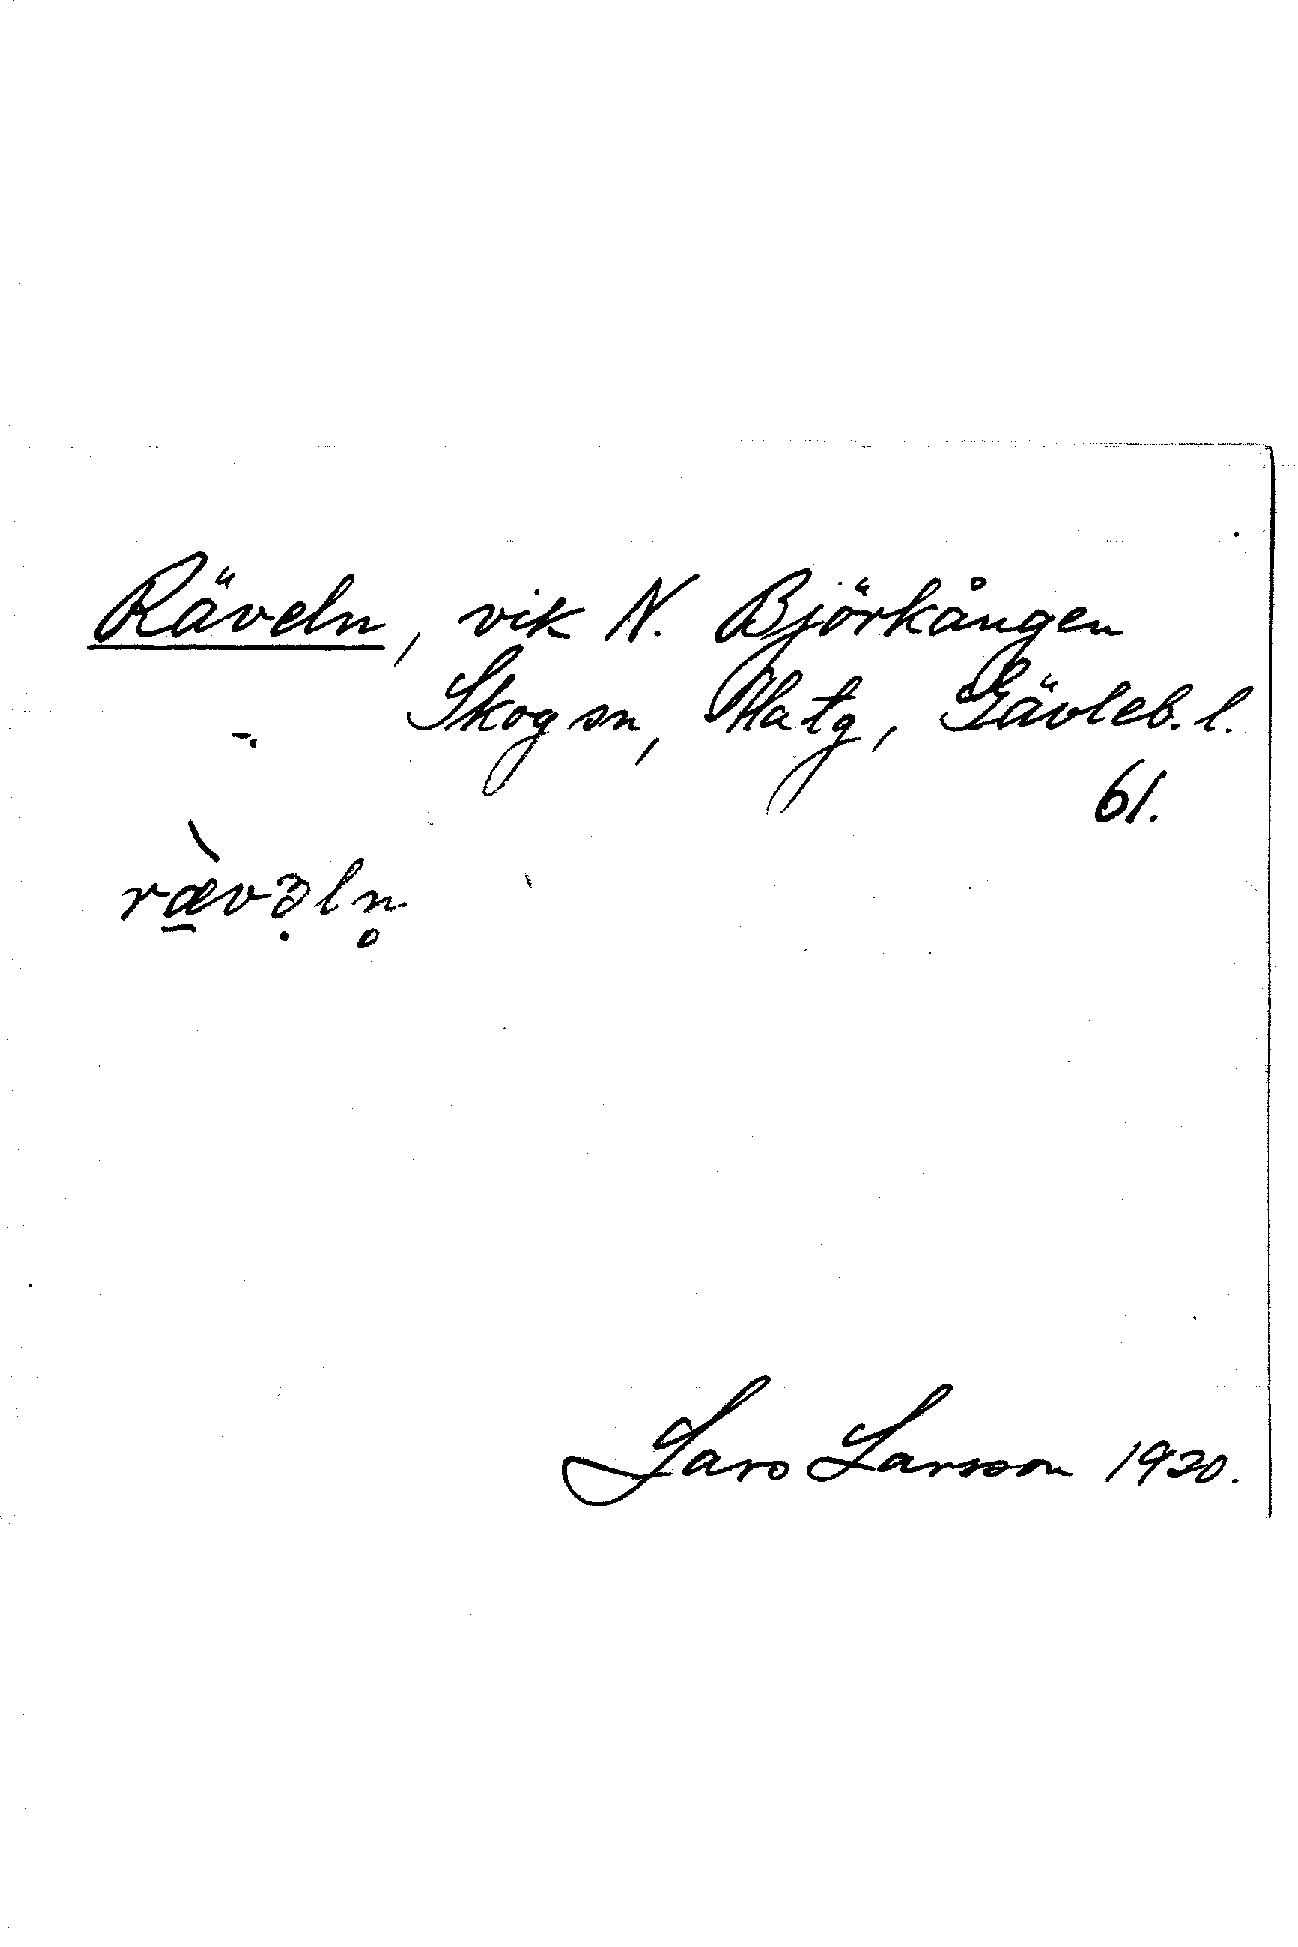 Räveln, vik N. Björkången
Skog sn, Ala tg, Gävleb. l.
61.
ræ̠̀və̣ln̥
Lars Larsson 1920.